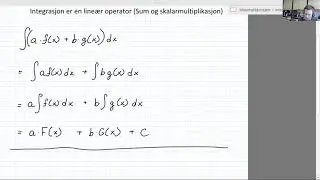 Integrasjon er en lineær operator (Sum og skalarmultiplikasjon)
∫(a·f(x) + b·g(x))dx
= ∫af(x)dx + ∫bg(x)dx
= a∫f(x)dx + b∫g(x)dx
= a·F(x) + b·G(x) + C